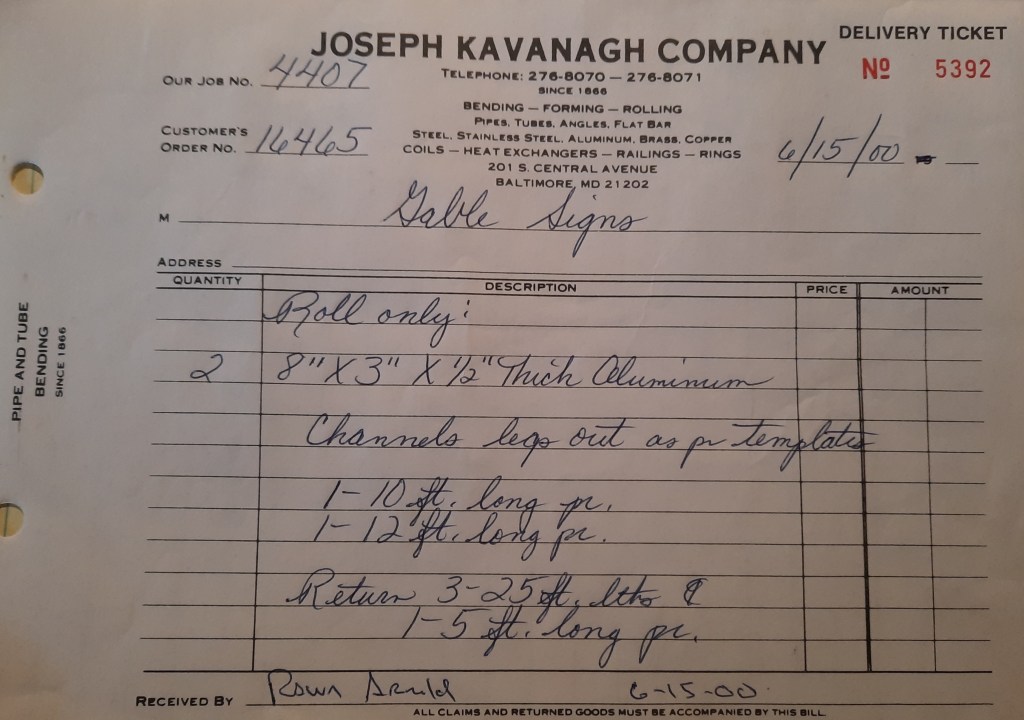 JOSEPH KAVANAGH COMPANY
DELIVERY TICKET
Nº 5392
OUR JOB NO. 4407
TELEPHONE: 276-8070 — 276-8071
SINCE 1866
BENDING — FORMING — ROLLING
PIPES, TUBES, ANGLES, FLAT BAR
CUSTOMER'S ORDER NO. 16465
STEEL, STAINLESS STEEL, ALUMINUM, BRASS, COPPER
COILS — HEAT EXCHANGERS — RAILINGS — RINGS
201 S. CENTRAL AVENUE
BALTIMORE, MD 21202
6/15/00
M Gable Signs
ADDRESS
QUANTITY DESCRIPTION PRICE AMOUNT
Roll only:
2 8" X 3" X 1/2" Thick Aluminum
Channels legs out as pr templates
1-10 ft. long pc.
1-12 ft. long pc.
Return 3-25 ft. lths &
1-5 ft. long pc.
RECEIVED BY 6-15-00
ALL CLAIMS AND RETURNED GOODS MUST BE ACCOMPANIED BY THIS BILL
PIPE AND TUBE
BENDING
SINCE 1866